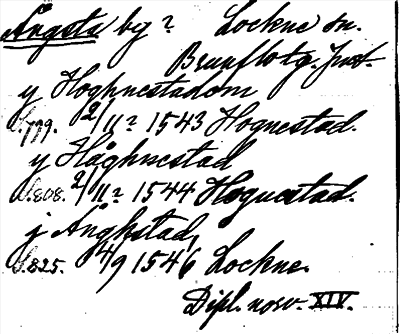 Ångsta by? Lockne sn.
Brunflo tg. Jmt.
y Hoghnestadom
S.779. 2/11? 1543 Hognestad.
y Håghnestad
S.808. 2/11? 1544 Hognestad.
j Ånghstad,
S.825. 4/9 1546 Lockne.
Dipl. norv. XIV.